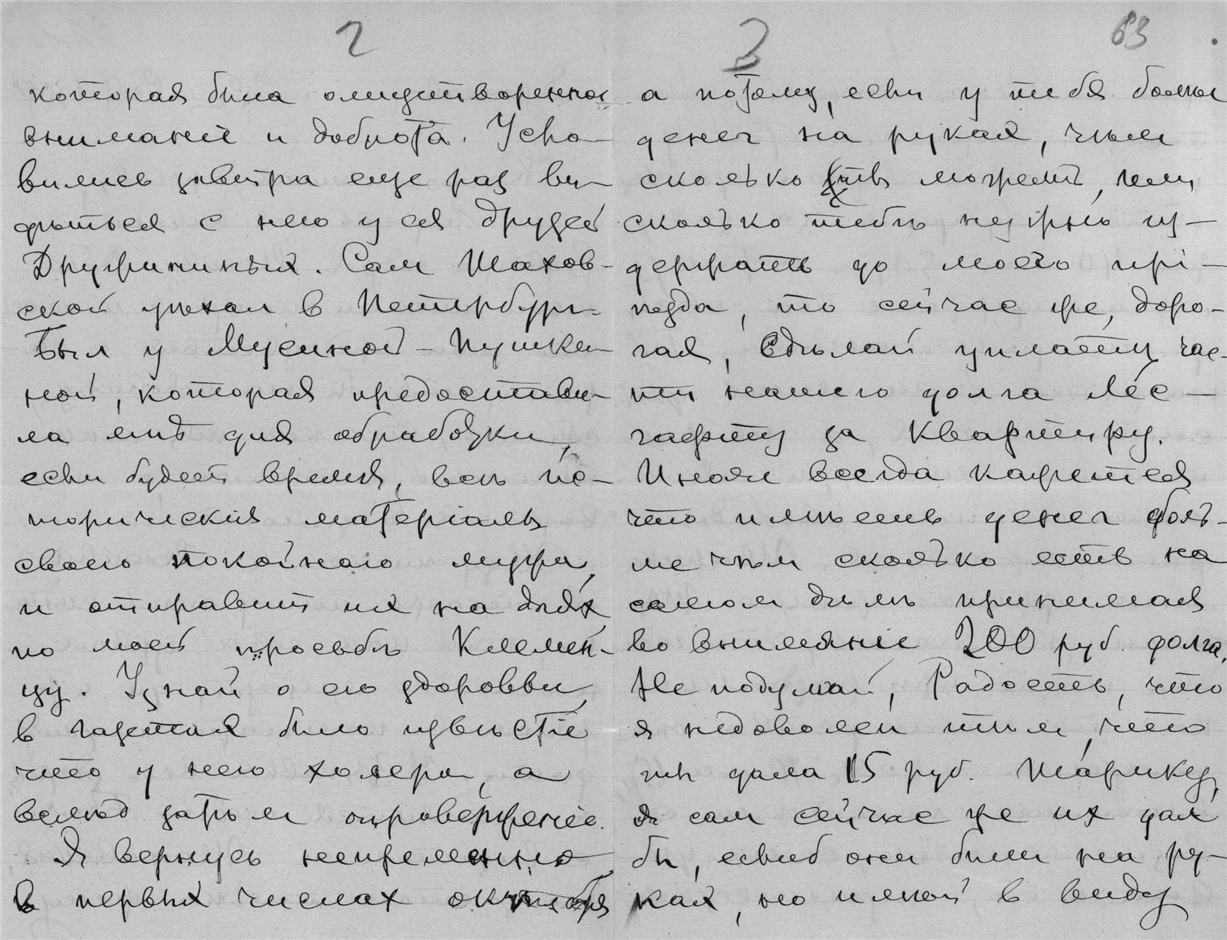 2
которая была олицетворенное
вниманіе и доброта. Усло-
вились завтра еще раз ви-
дѣться с нею у ея друзей
Дружининых. Сам Шахов-
ской уѣхал в Петербург.
Был у Мусиной-Пушки-
ной, которая предостави-
ла мнѣ для обработки,
если будет время, всѣ ис-
торическія матеріалы
своего покойнаго мужа,
и отправит их на днях
по моей просьбѣ Клемен-
цу. Узнай о его здоровьи,
в газетах было извѣстіе
что у него холера, а
вслѣд затѣм опроверженіе.
Я вернусь непременно
в первых числах октября
3
63
а потому, если у тебя больше
денег на руках, чѣм
сколько может, чѣм
сколько тебѣ нужно из-
держать до моего прі-
ѣзда, то сейчас же, доро-
гая, сдѣлай уплату час-
ти нашего долга Лес-
гафту за квартиру.
Ином всегда кажется
что имѣешь денег боль-
ше чѣм сколько есть на
самом дѣлѣ принимая
во вниманіе 200 руб. долга.
Не подумай, Радость, что
я недоволен тѣм, что
ты дала 15 руб. Шарику,
я сам сейчас же их дал
бы, еслиб они были на ру-
ках, но имѣй в виду